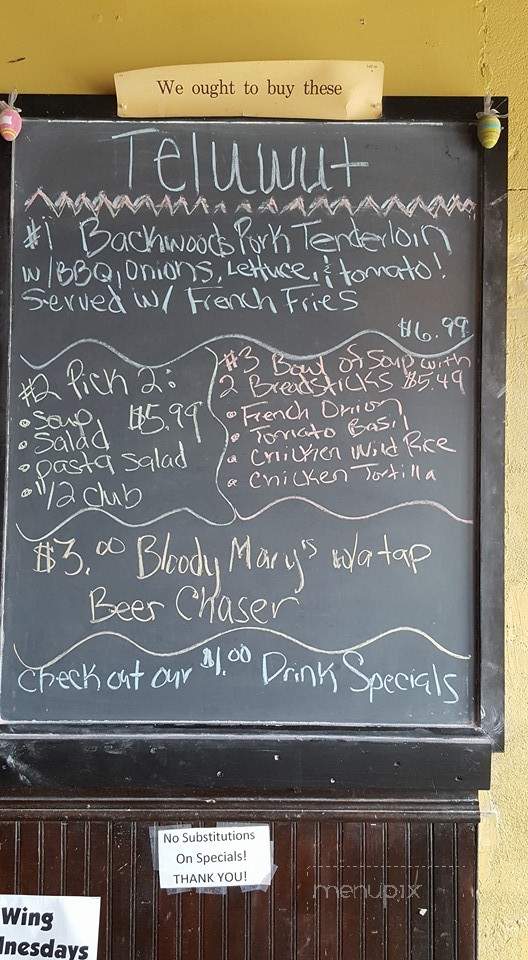 We ought to buy these
Teluwut
#1 Backwoods Pork Tenderloin
w/BBQ, Onions, Lettuce, & tomato!
Served w/ French Fries
$6.99
#2 Pick 2:
• Soup $5.99
• Salad
• Pasta Salad
• 1/2 club
#3 Bowl of Soup with
2 Breadsticks $5.49
• French Onion
• Tomato Basil
• Chicken Wild Rice
• Chicken Tortilla
$3.00 Bloody Mary's w/a tap
Beer Chaser
Check out our $1.00 Drink Specials
No Substitutions
On Specials!
THANK YOU!
menupix
Wing
lnesdays